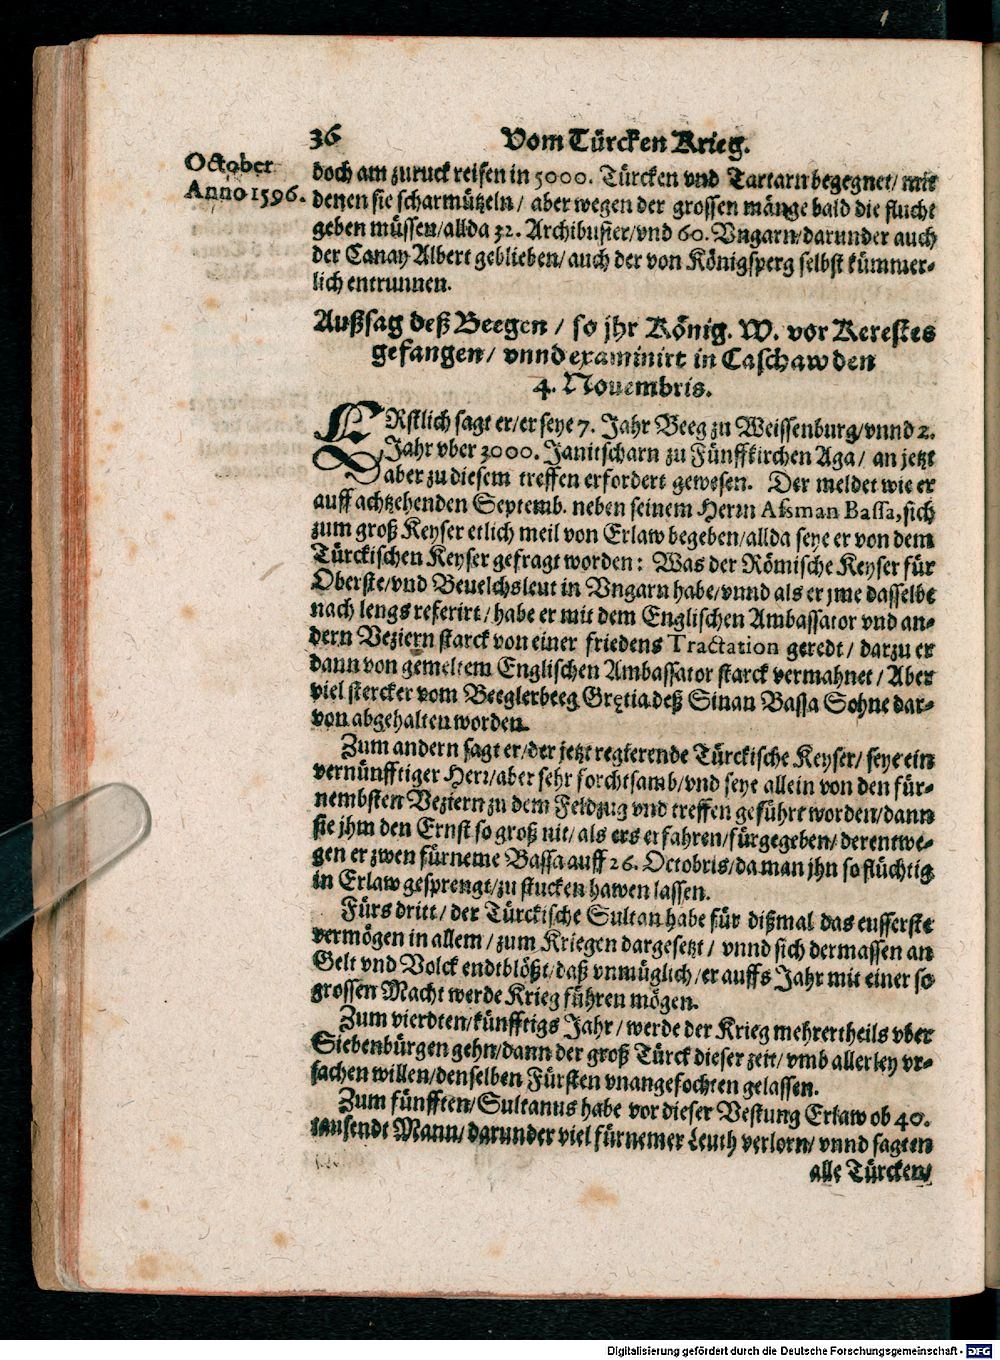 36 Vom Türcken Krieg.
October
Anno 1596.
doch am zuruck reisen in 5000. Türcken vnd Tartarn begegnet/ mit
denen sie scharmützeln/ aber wegen der grossen mänge bald die flucht
geben müssen/allda 32. Archibusier/vnd 60. Vngarn/darunder auch
der Canay Albert geblieben/auch der von Königsperg selbst kümmer-
lich entrunnen.
Außsag deß Beegen / so jhr König. W. vor Kerestes
gefangen/ vnnd examinirt in Caschaw den
4. Nouembris.
ERstlich sagt er/er seye 7. Jahr Beeg zu Weissenburg/vnnd 2.
Jahr vber 3000. Janitscharn zu Fünffkirchen Aga/ an jetzt
aber zu diesem treffen erfordert gewesen. Der meldet wie er
auff achtzehenden Septemb. neben seinem Herrn Assman Bassa, sich
zum groß Keyser etlich meil von Erlaw begeben/allda seye er von dem
Türckischen Keyser gefragt worden: Was der Römische Keyser für
Oberste/vnd Beuelchsleut in Vngarn habe/vnnd als er jme dasselbe
nach lengs referirt/habe er mit dem Englischen Ambassator vnd an-
dern Veziern starck von einer friedens Tractation geredt/ darzu er
dann von gemeltem Englischen Ambassator starck vermahnet/ Aber
viel stercker vom Beeglerbeeg Grętia deß Sinan Bassa Sohne dar-
von abgehalten worden.
Zum andern sagt er/der jetzt regierende Türckische Keyser/ seye ein
vernünfftiger Herr/aber sehr forchtsamb/vnd seye allein von den für-
nembsten Veziern zu dem Feldzug vnd treffen geführt worden/dann
sie jhm den Ernst so groß nit/ als ers erfahren/fürgegeben/ derentwe-
gen er zwen fürneme Bassa auff 26. Octobris/da man jhn so flüchtig
in Erlaw gesprengt/zu stucken hawen lassen.
Fürs dritt/ der Türckische Sultan habe für dißmal das eusserste
vermögen in allem/ zum Kriegen dargesetzt/ vnnd sich dermassen an
Gelt vnd Volck endtblößt/daß vnmüglich/er auffs Jahr mit einer so
grossen Macht werde Krieg führen mögen.
Zum vierdten/künfftigs Jahr/ werde der Krieg mehrertheils vber
Siebenbürgen gehn/dann der groß Türck dieser zeit/ vmb allerley vr-
sachen willen/denselben Fürsten vnangefochten gelassen.
Zum fünfften/Sultanus habe vor dieser Vestung Erlaw ob 40.
tausendt Mann/ darunder viel fürnemer Leuth verlorn/ vnnd sagten
alle Türcken/
Digitalisierung gefördert durch die Deutsche Forschungsgemeinschaft - DFG